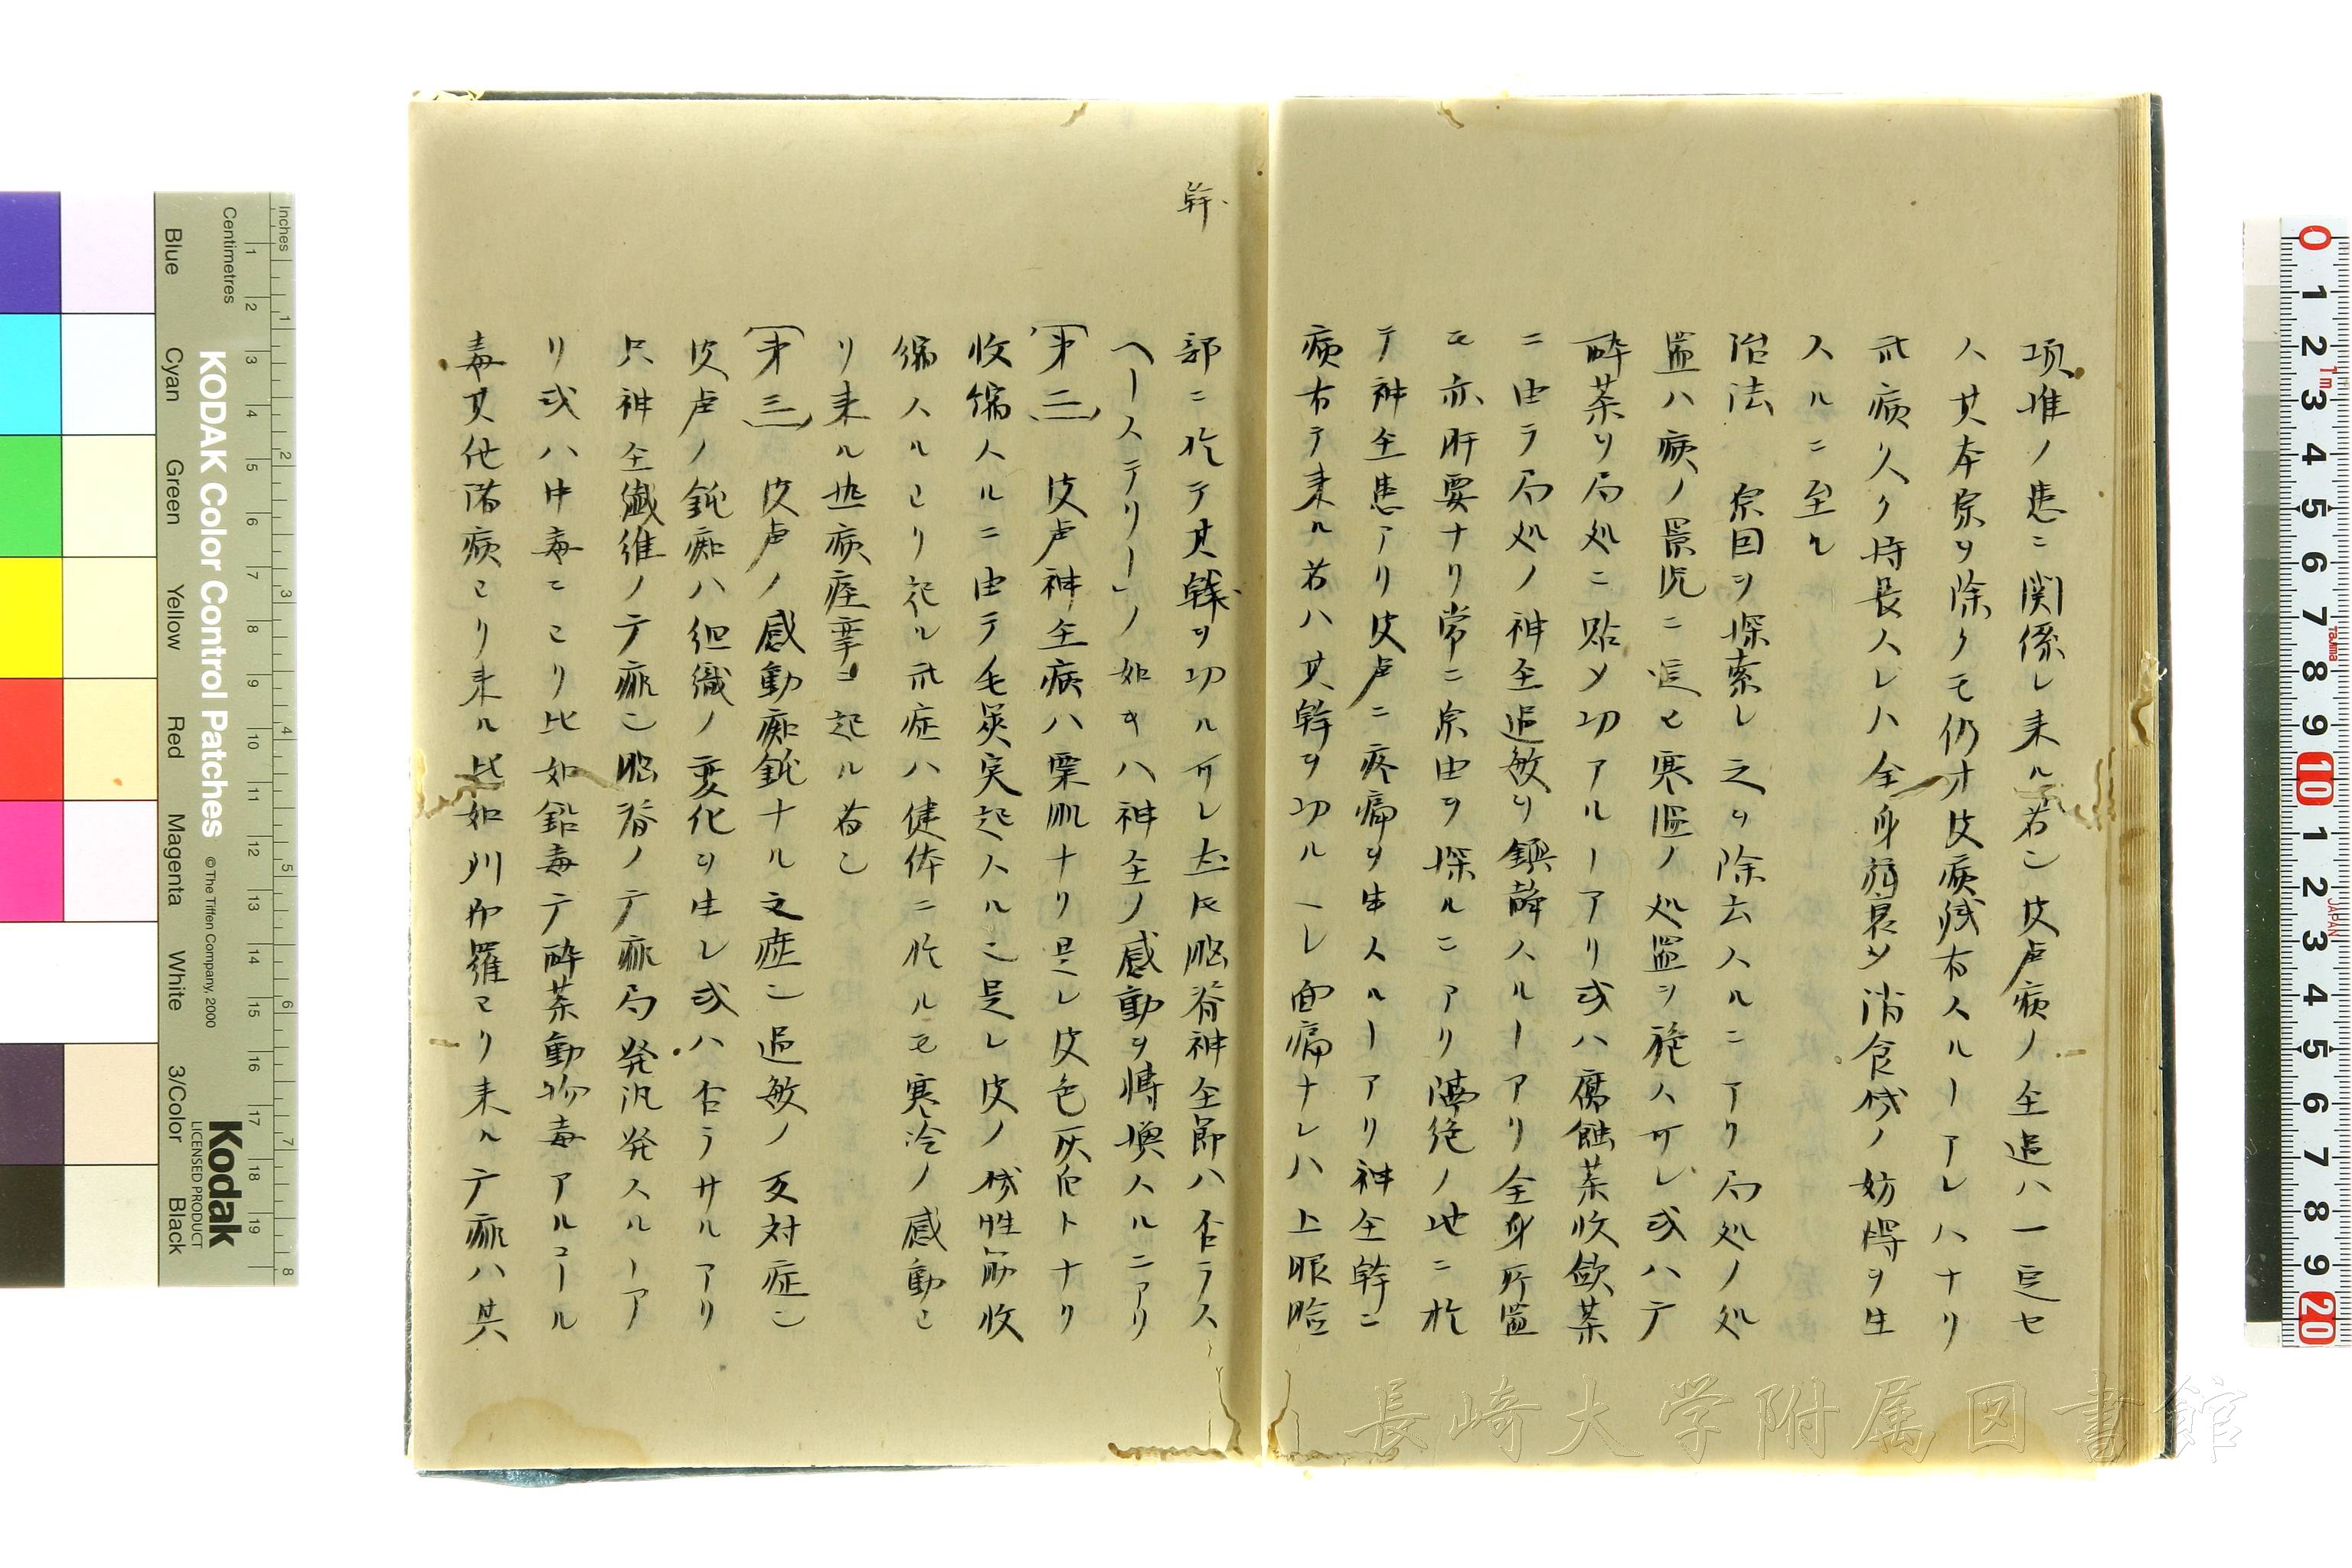 項椎ノ患ニ関係シ来ル者ニ皮膚病ノ全過ハ一定セ
ス其本宗ヲ除クモ仍オ皮病残存スルーアレハナリ
爪病久ク持長スレハ全身羸衰シ消食機ノ妨碍ヲ生
スルニ至ル
治法 宗因ヲ探索シ之ヲ除去スルニアリ局処ノ処
置ハ病ノ景況ニ従ヒ寒温ノ処置ヲ施スヘシ或ハテ
酔茶リ局処ニ貼メ功アルーアリ或ハ腐蝕茶收歛茶
ニ由テ局処ノ神全過敏ヲ鎮静スルーアリ全身所置
モ亦肝要ナリ常ニ宗由ヲ探ルニアリ隔絶ノ地ニ於
テ神全患アリ皮膚ニ疼痛ヲ生スルーアリ神全幹ニ
病有テ来ル者ハ其幹ヲ切ルーシ面痛ナレハ上眼瞼
幹
部ニ於テ其幹ヲ切ルヘシ𪜈脳脊神全節ハ否ラス
「ヘーステリー」ノ如キハ神全ノ感動ヲ轉換スルニアリ
(第二) 皮膚神全病ハ粟肌ナリ是レ皮色灰白トナリ
收縮スルニ由テ毛嚢突起スルニ是レ皮ノ機性筋收
縮スルヨリ起ル爪症ハ健体ニ於ルモ寒冷ノ感動ヨ
リ来ル熱病痙攣ヨ起ル者ニ
(第三) 皮膚ノ感動痴鈍ナル之症ニ過敏ノ反対症ニ
皮膚ノ鈍痴ハ組織ノ変化ヲ生シ或ハ否ラサルアリ
只神全纖維ノテ痲ニ脳脊ノテ痲局発汎発スルーア
リ或ハ中毒ニヨリ比如鉛毒テ酔茶動物毒アルコール
毒其他諸病ヨリ来ル比如列布羅ヨリ来ルテ痲ハ其
Inches
Centimetres
KODAK Color Control Patches
© The Tiffen Company, 2000
Kodak
LICENSED PRODUCT
Blue
Cyan
Green
Yellow
Red
Magenta
White
3/Color
Black
JAPAN
長崎大学附属図書館